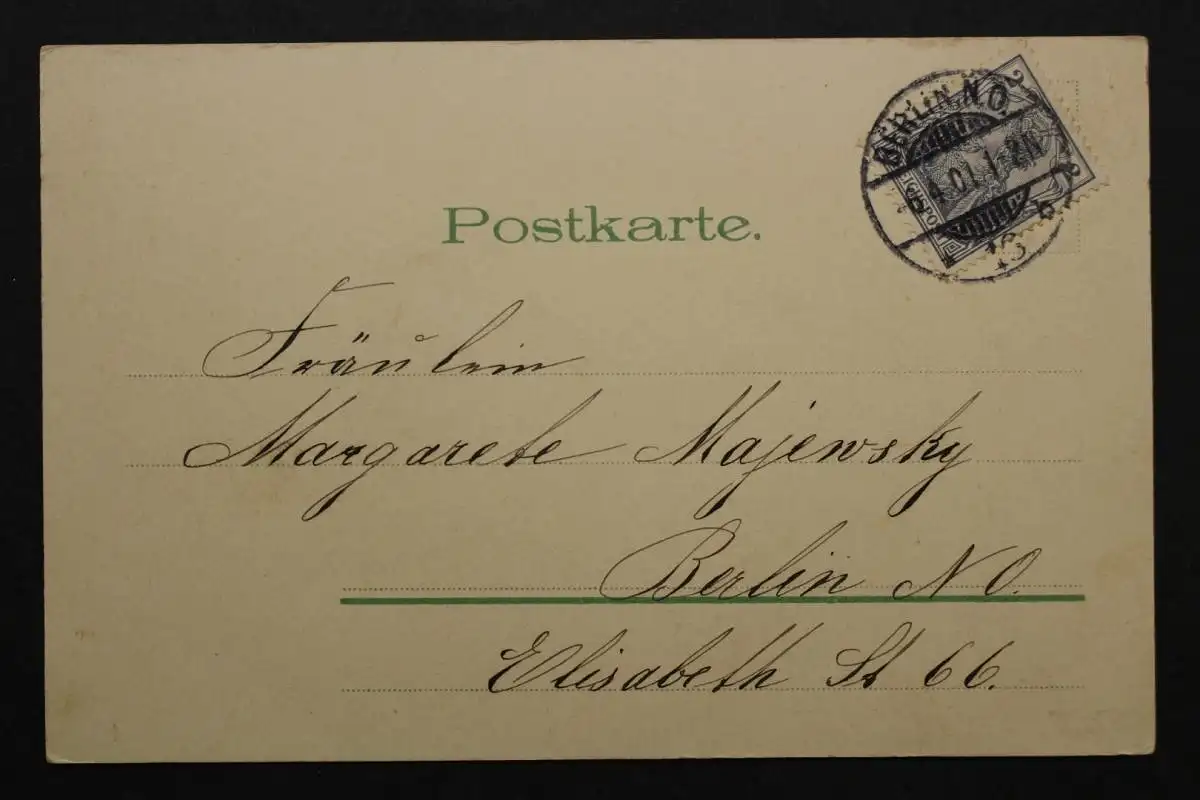 BERLIN. N.O.
4.01.1-2N
Postkarte.
Fräulein
Margarete Majewsky
Berlin NO.
Elisabeth St 66.